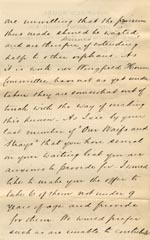 are unwilling that the provision
thus made should be wasted,
and are therefore desirous of extending
help to other orphans. As
it is work our Honoured House
Committee have not as yet under
taken they are somewhat out of
touch with the way of making
this known. As I see by your
last number of "Our Waifs and
Strays" that you have several
on your waiting list you are
anxious to provide for I should
like to make you the offer to
take 6 of them not under 9
years of age and provide
for them. We would prefer
such as are unable to contribute